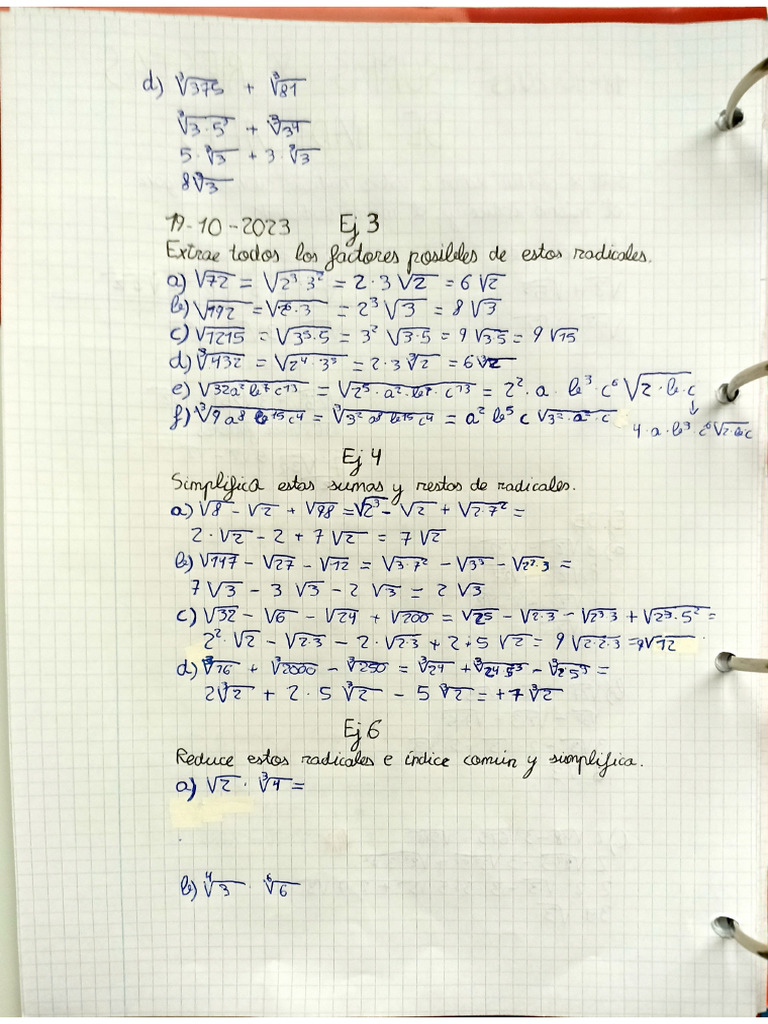 d) ∛375 + ∛81
∛3·5³ + ∛3⁴
5·∛3 + 3·∛3
8∛3
19-10-2023 Ej 3
Extrae todos los factores posibles de estos radicales.
a) √72 = √2³3² = 2·3√2 = 6√2
b) √192 = √2⁶·3 = 2³√3 = 8√3
c) √1215 = √3⁵·5 = 3²√3·5 = 9√3·5 = 9√15
d) ∛432 = √2⁴·3³ = 2·3∛2 = 6∛2
e) √32a²b⁷c¹³ = √2⁵·a²·b⁷·c¹³ = 2²·a·b³·c⁶√2·b·c
f) ∛9a⁸b¹⁵c⁴ = ∛3²a⁸b¹⁵c⁴ = a²b⁵c√3²·a²·c
↓
4·a·b³·c⁶√2·b·c
Ej 4
Simplifica estas sumas y restos de radicales.
a) √8 - √2 + √98 = √2³ - √2 + √2·7² =
2·√2 - 2 + 7√2 = 7√2
b) √147 - √27 - √12 = √3·7² - √3³ - √2²·3 =
7√3 - 3√3 - 2√3 = 2√3
c) √32 - √6 - √24 + √200 = √2⁵ - √2·3 - √2³3 + √2³·5² =
2²·√2 - √2·3 - 2·√2·3 + 2·5√2 = 9√2·2·3 = 9√12
d) ∛16 + ∛2000 - ∛250 = ∛2⁴ + ∛2⁴5³ - ∛2·5³ =
2∛2 + 2·5∛2 - 5∛2 = +7∛2
Ej 6
Reduce estos radicales e índice común y simplifica.
a) √2 · ∛4 =
b) ⁴√3 · ⁶√6